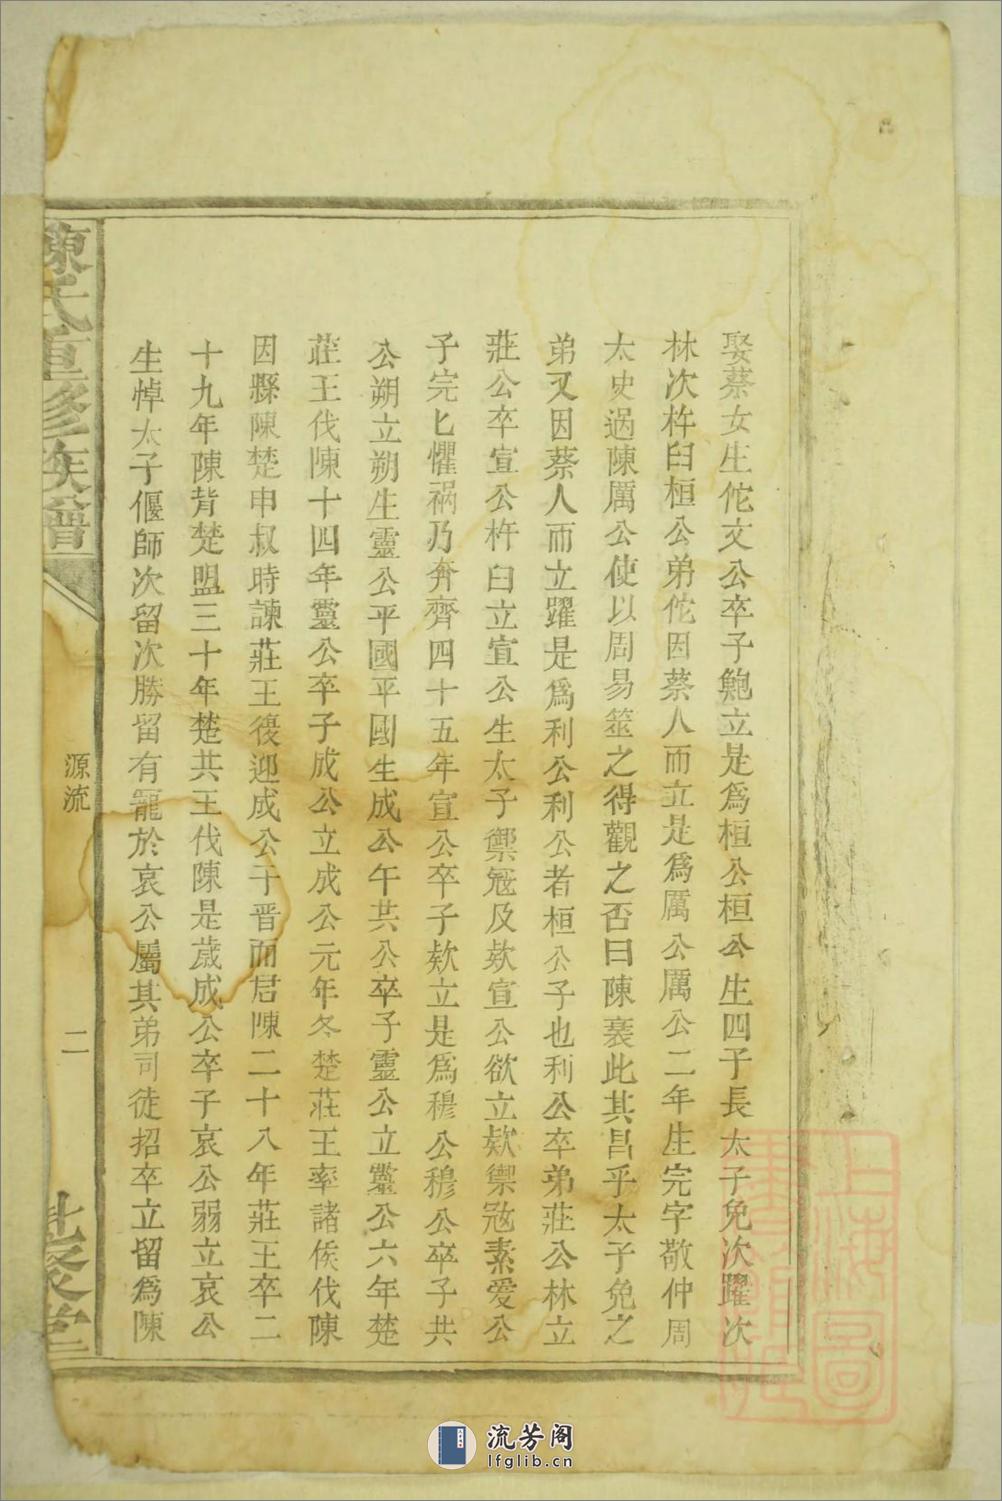 娶蔡女生佗文公卒子鮑立是爲桓公桓公生四子長太子免次躍次
林次杵臼桓公弟佗因蔡人而立是爲厲公厲公二年生完字敬仲周
太史過陳厲公使以周易筮之得觀之否曰陳衰此其昌乎太子免之
弟又因蔡人而立躍是爲利公利公者桓公子也利公卒弟莊公林立
莊公卒宣公杵臼立宣公生太子禦寇及欵宣公欲立欵禦寇素爱公
子完匕懼祸乃奔齊四十五年宣公卒子欵立是爲穆公穆公卒子共
公朔立朔生靈公平國平國生成公午共公卒子靈公立靈公六年楚
莊王伐陳十四年靈公卒子成公立成公元年冬楚莊王率諸侯伐陳
因縣陳楚申叔時諫莊王復迎成公于晋而居陳二十八年莊王卒二
十九年陳背楚盟三十年楚共王伐陳是歲成公卒子哀公弱立哀公
生悼太子偃師次留次勝留有寵於哀公屬其弟司徒招卒立留爲陳
陳氏重修族譜
源流
二
聚堂
上海圖
書館藏
流芳阁
lfglib.cn